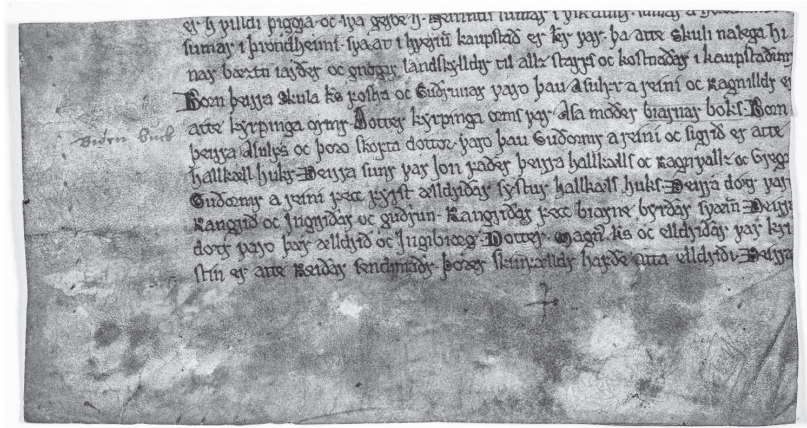 er h villdi þiggia oc sva gerðe h. sumar i vik austr. sumar a
sumar i þrondheimi. sva at i hveriu kaupstad er kr var. þa atte skuli nalega hi
nar bæztu iarðer oc gnogar landskylldir til allz starfs oc kostnaðar i kaupstaðinum
Born þeirra skula ks fostra oc Guðrunar varo þau asulfr a reini oc Ragnilldr er
atte kyrpinga ormr. Dotter kyrpinga orms var. asa moðer biarnar boks. Born
Biörn buck
þeirra asulfs oc þoro skopta dottor. varo þau Guðormr a reini oc sigrid er atte
hallkæll huks. Þeirra sunr var Jon faðer þeirra hallkæls oc Ragnvallz oc Gregor
Guðormr a reini fecc fyrst ælldridar systur hallkæls huks. Þeirra dotr var
Rangrid oc Ingiridr oc guðrun. Rangridar fecc biarne byrdar svæin. Þeirra
dotr varo þær ælldrid oc Ingibiorg. Dotter. Magn ks oc elldridar var kri
stin er atte Reidar sendimadr. þorer skinfælldr hafde atta elldridi. Þeirra